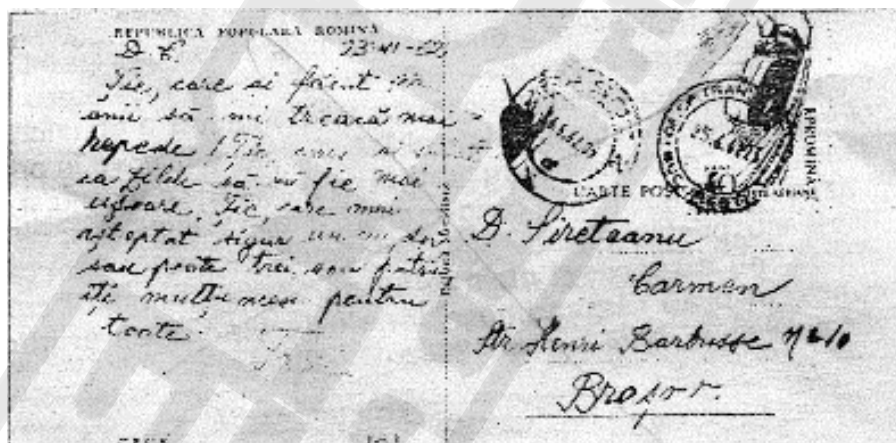 REPUBLICA POPULARA ROMINA
Ție, care ai făcut ca
anii să-mi treacă mai
repede! Ție care ai făcut
ca zilele să-mi fie mai
ușoare, Ție, care m-ai
așteptat sigur un an, doi
sau poate trei sau patru
îți mulțumesc pentru
toate.
CARTE POȘTALĂ
D. Sireteanu
Carmen
Str. Henri Barbusse
Brașov.